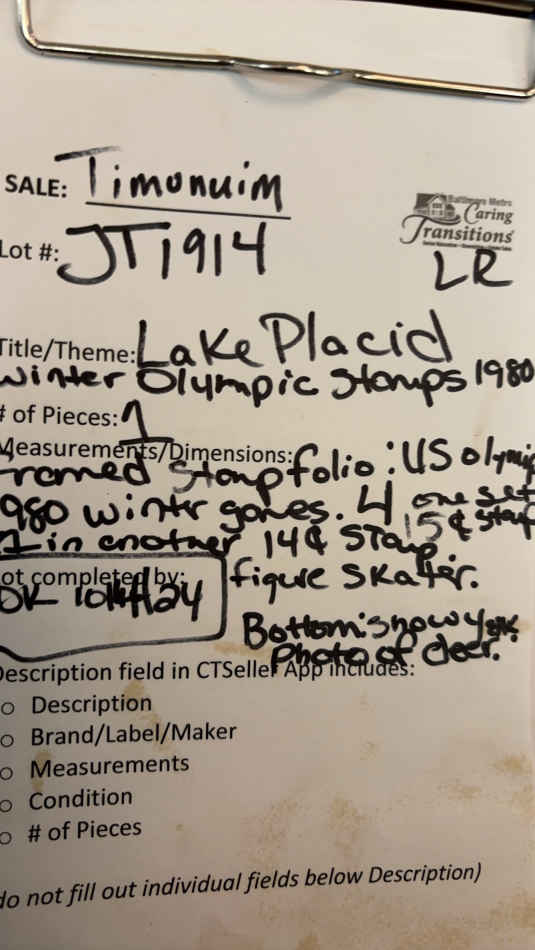 SALE: Timonuim
Baltimore Metro
Caring
Transitions
Lot #: JT1914
LR
Title/Theme: Lake Placid
Winter Olympic Stamps 1980
# of Pieces: 1
Measurements/Dimensions:
Framed Stamp folio: US olympic
1980 winter games. 4 one set
15¢ stamp
1 in another 14¢ Stamp.
Lot completed by:
DK
figure Skater.
Bottom: snowy
Photo of deer.
Description field in CTSeller App includes:
o Description
o Brand/Label/Maker
o Measurements
o Condition
o # of Pieces
do not fill out individual fields below Description)